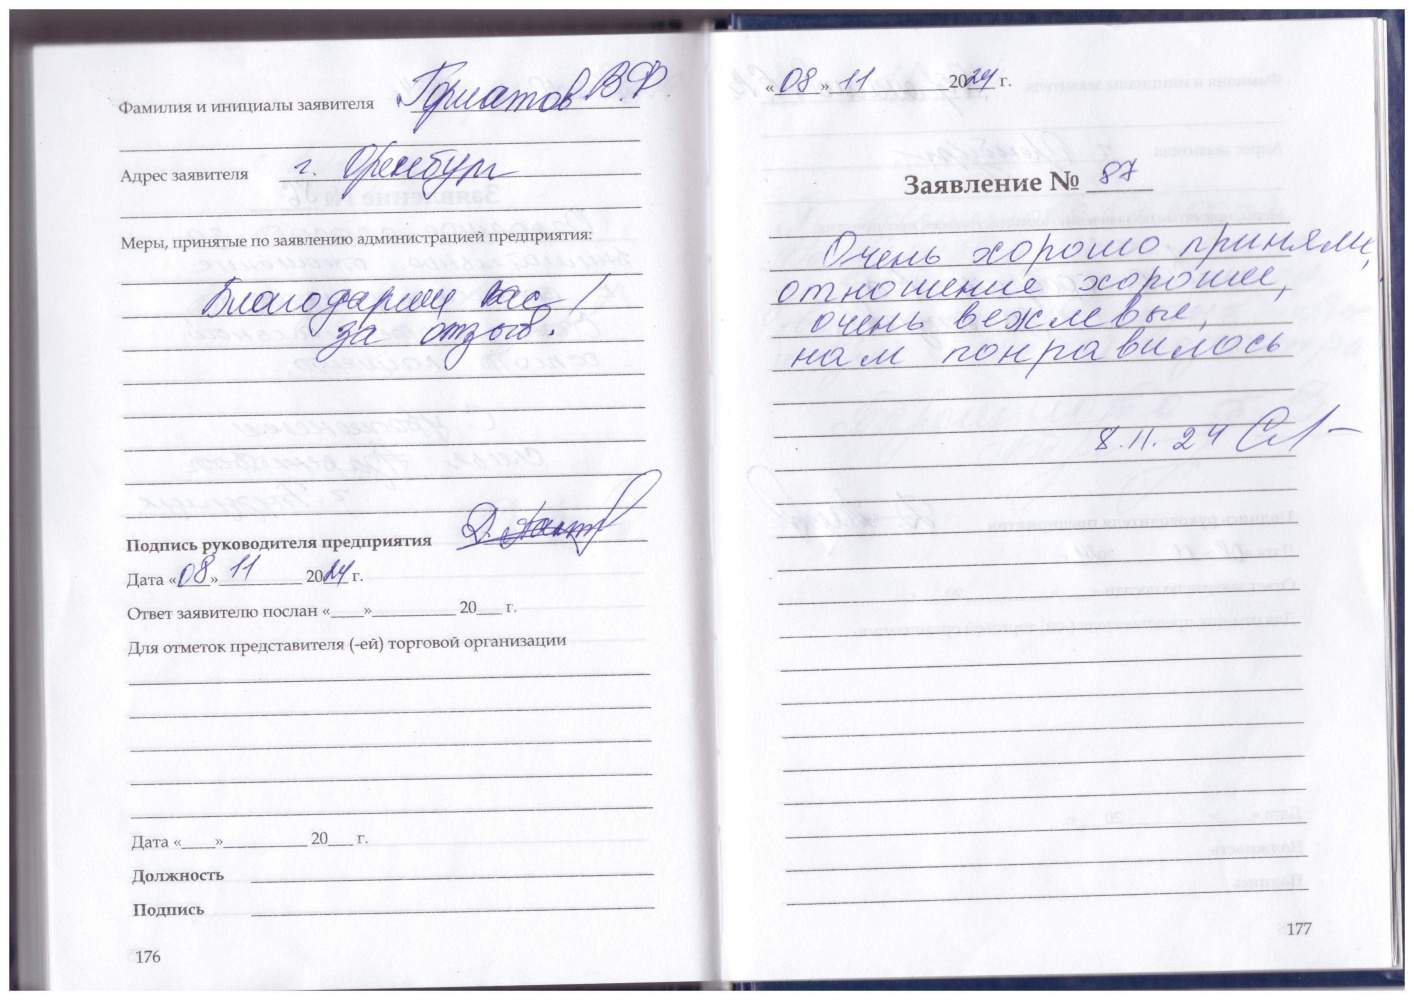 Фамилия и инициалы заявителя В.Ф.
Адрес заявителя г. Оренбург
Меры, принятые по заявлению администрацией предприятия:
Благодарим вас
за отзыв!
Подпись руководителя предприятия
Дата «08» 11 2024 г.
Ответ заявителю послан «____»__________ 20___ г.
Для отметок представителя (-ей) торговой организации
Дата «____»__________ 20___ г.
Должность
Подпись
176
«08» 11 2024 г.
Заявление № 87
Очень хорошо приняли,
отношение хорошее,
очень вежлевые,
нам понравилось
8.11.24
177